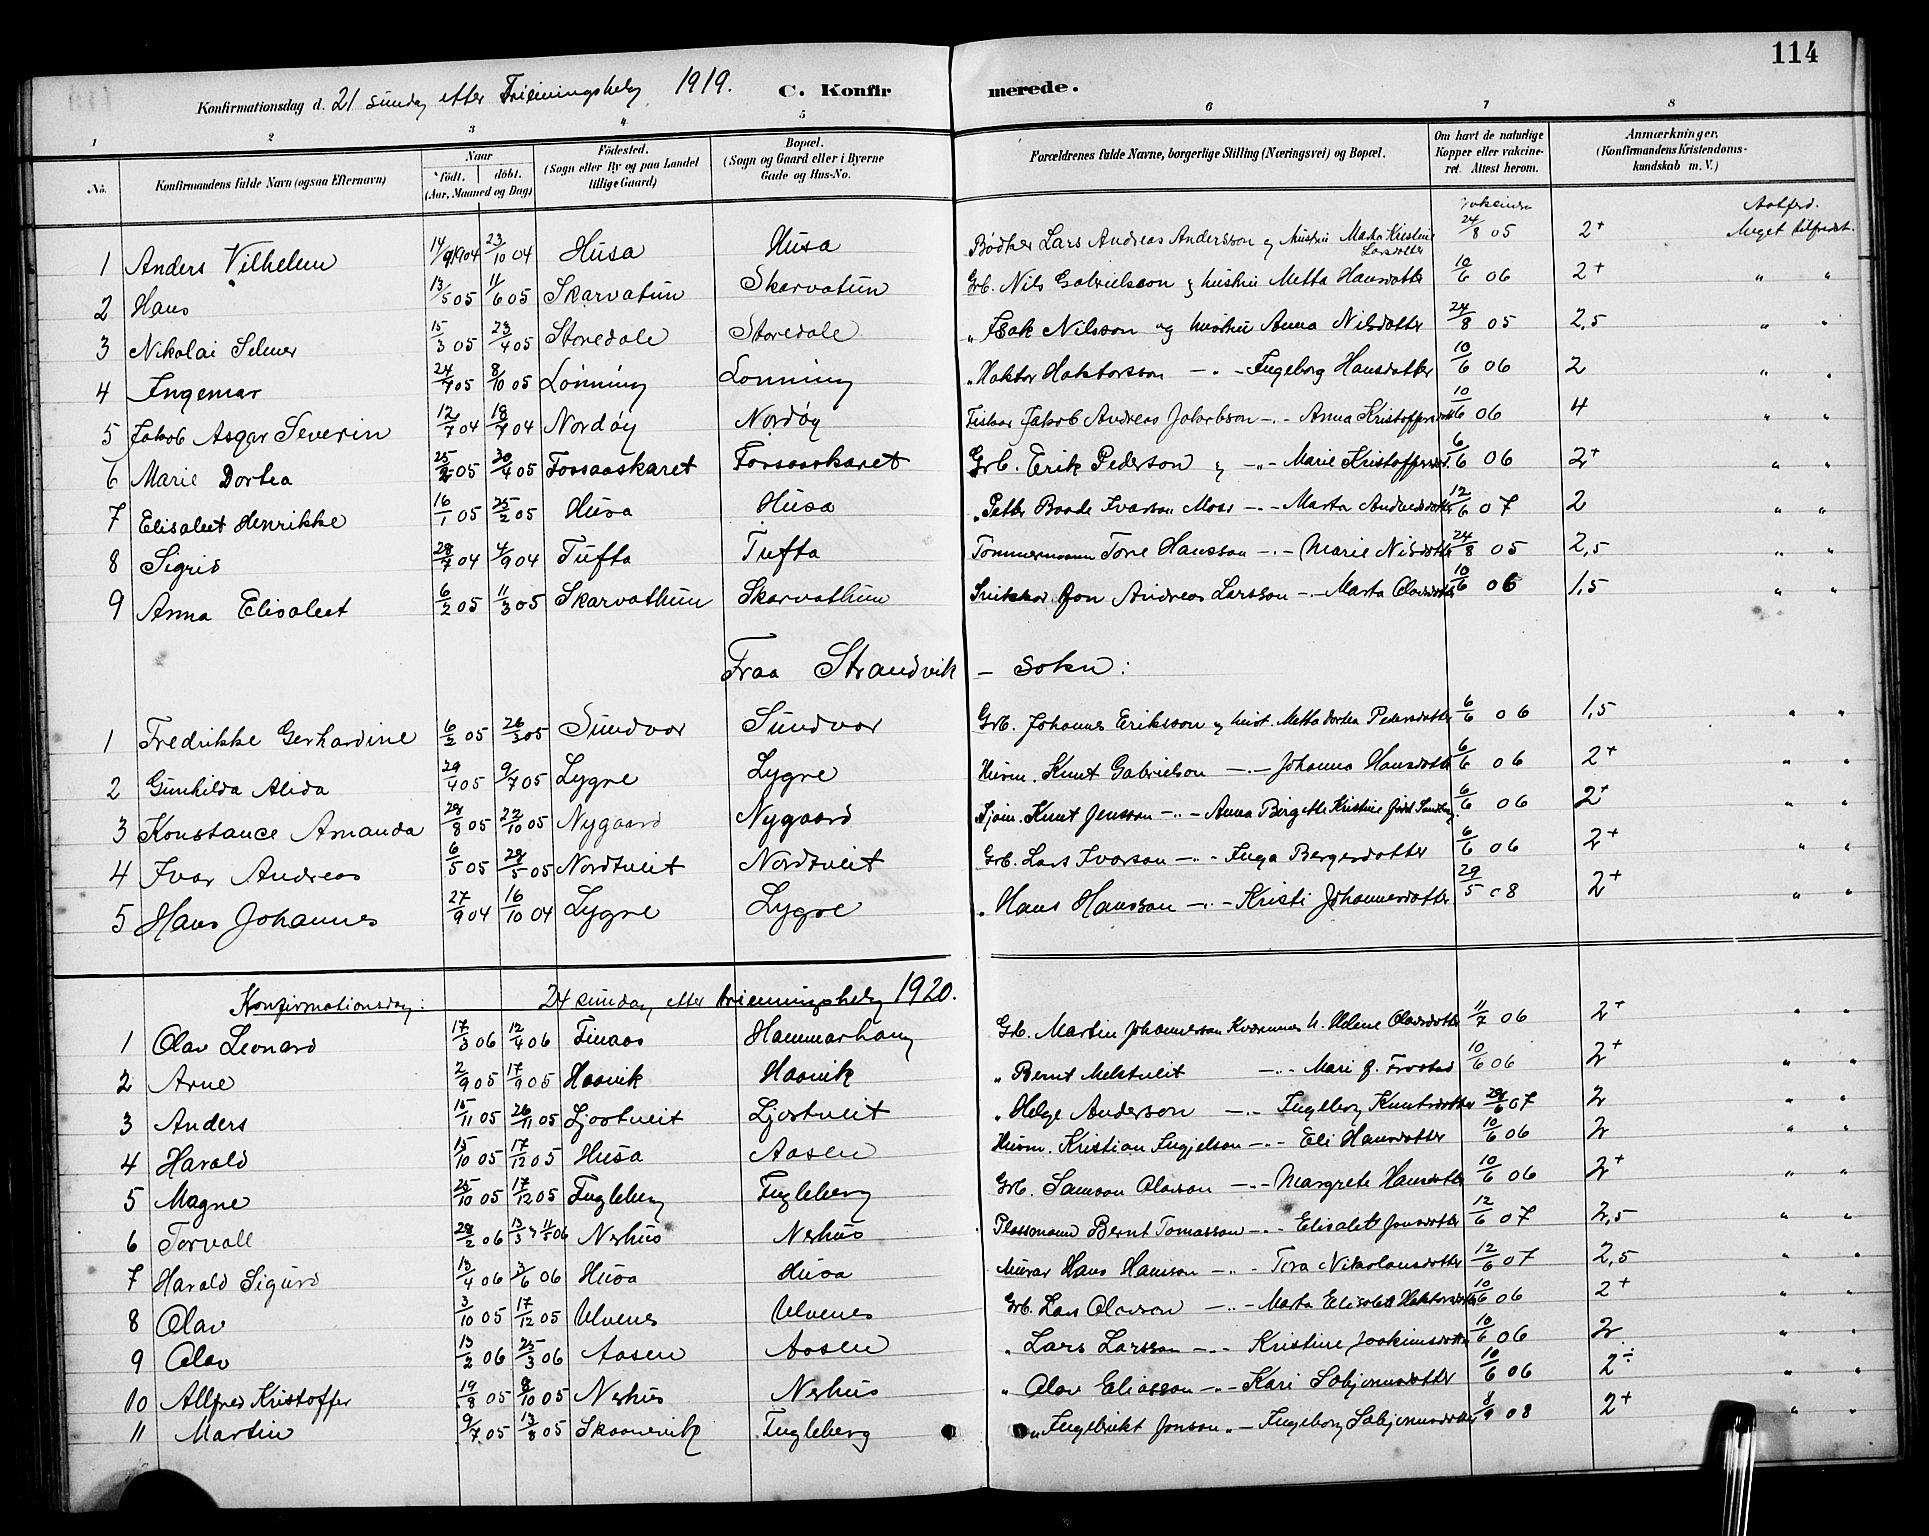 114
Konfirmationsdag d. 21 sundag etter Trieiningshelg 1919. C. Konfirmerede.
1 2 3 4 5 6 7 8
No. Konfirmandens fulde Navn (ogsaa Efternavn) Naar födt. döbt. (Aar, Maaned og Dag) Födested. (Sogn eller By og paa Landet tillige Gaard) Bopæl. (Sogn og Gaard eller i Byerne Gade og Hus-No. Forældrenes fulde Navne, borgerlige Stilling (Næringsvei) og Bopæl. Om havt de naturlige Kopper eller vakcineret. Attest herom. Anmærkninger. (Konfirmandens Kristendomskundskab m. V.)
1 Anders Vilhelm 14/9 1904 23/10 04 Husa Husa Bødker Lars Andreas Andersson og hustru Marta Kristine Larsdotter 24/8 05 2+ Meget tilfredst.
2 Hans 13/5 05 11/6 05 Skarvatun Skarvatun Grb. Nils Gabrielsson og hustru Metta Hansdotter 10/6 06 2+ " "
3 Nikolai Selmer 15/3 05 23/4 05 Storedale Storedale " Isak Nilsson og hustru Anna Nilsdotter 24/8 05 2,5 " "
4 Ingemar 24/7 05 8/10 05 Lønning Lønning " Haktor Haktorsson -"- Ingeborg Hansdotter 10/6 06 2 " "
5 Jakob Asgar Severin 12/7 04 18/9 04 Nordøy Nordøy Fiskar Jakob Andreas Jakobson -"- Anna Kristoffersdott 10/6 06 4 " "
6 Marie Dortea 25/2 05 30/4 05 Fossaaskaret Fossaaskaret Grb. Erik Pederson og -"- Marie Kristoffersd. 6/6 06 2+ " "
7 Elisabet Henrikke 16/1 05 25/2 05 Husa Husa " Petter Baade Ivarson Moss -"- Marta Andreasdotter 12/6 07 2 " "
8 Sigrid 28/7 04 4/9 04 Tufta Tufta Tømmermann Tore Hansson -"- Marie Nilsdotter 24/8 05 2,5 " "
9 Anna Elisabet 6/2 05 11/3 05 Skarvathun Skarvathun Snikkar Jon Andreas Larsson -"- Marta Olavsdotter 10/6 06 1,5 " "
Fraa Strandvik - sokn:
1 Fredrikke Gerhardine 6/2 05 26/3 05 Sundvor Sundvor Grb. Johannes Eriksson og hust. Metta Dortea Petersdotter 6/6 06 1,5 " "
2 Gunhilda Alida 29/4 05 9/7 05 Lygre Lygre Husm. Knut Gabrielson -"- Johanna Hansdotter 6/6 06 2+ " "
3 Konstance Amanda 28/8 05 22/10 05 Nygaard Nygaard Sjøm. Knut Jensson -"- Anna Birgette Kristine 6/6 06 2+ " "
4 Ivar Andreas 6/5 05 28/5 05 Nordtveit Nordtveit Grb. Lars Ivarson -"- Inga Bergesdotter 6/6 06 2+ " "
5 Hans Johannes 27/9 04 16/10 04 Lygre Lygre " Hans Hansson -"- Kristi Johannesdotter 29/5 08 2+ " "
Konfirmationsdag: 24 sundag etter trieiningshelg 1920.
1 Olav Leonard 17/3 06 12/4 06 Finaas Hammarhaug Grb. Martin Johannesson Kvamme h. Helene Olavsdotter 11/7 06 2+ " "
2 Arne 2/9 05 17/9 05 Haavik Haavik " Bernt Melstveit -"- Mari f. Frostad 10/6 06 2+ " "
3 Anders 15/11 05 26/11 05 Ljostveit Ljostveit " Helge Anderson -"- Ingeborg Knutsdotter 29/6 07 2 " "
4 Harald 15/10 05 17/12 05 Husa Aasen Husm. Kristian Ingjelson -"- Eli Hansdotter 10/6 06 2 " "
5 Magne 25/10 05 17/12 05 Fugleberg Fugleberg Grb. Samson Olavson -"- Margrete Hansdotter 10/6 06 2+ " "
6 Torvall 28/2 06 13/3, 11/5 06 Nerhus Nerhus Plassmann Bernt Tomasson -"- Elisabet Jonsdotter 12/6 07 2,5 " "
7 Harald Sigurd 13/4 06 3/6 06 Husa Husa Murar Hans Hanson -"- Tora Nikolausdotter 12/6 07 2,5 " "
8 Olav 3/10 05 17/12 05 Ulvenes Ulvenes Grb. Lars Olavson -"- Marta Elisabet Haktorsdotter 10/6 06 2+ " "
9 Olav 13/2 06 25/3 06 Aasen Aasen " Lars Larsson -"- Kristine Joakimsdotter 10/6 06 2 " "
10 Allfred Kristoffer 19/8 05 8/10 05 Nerhus Nerhus " Olav Eliasson -"- Kari Sæbjørnsdotter 10/6 06 2÷ " "
11 Martin 9/7 05 13/8 05 Skaanevik Fugleberg " Ingebrikt Jonson " - Ingeborg Sæbjørnsdotter 8/9 08 2+ " "